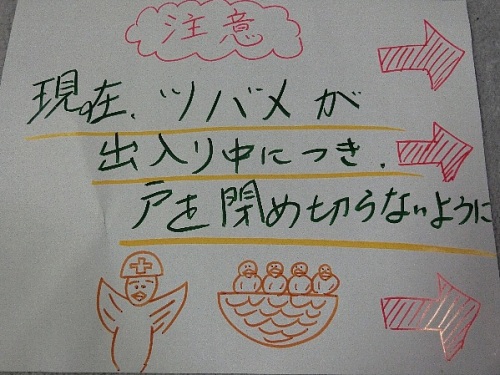 注意
現在、ツバメが
出入り中につき、
戸を閉め切らないように